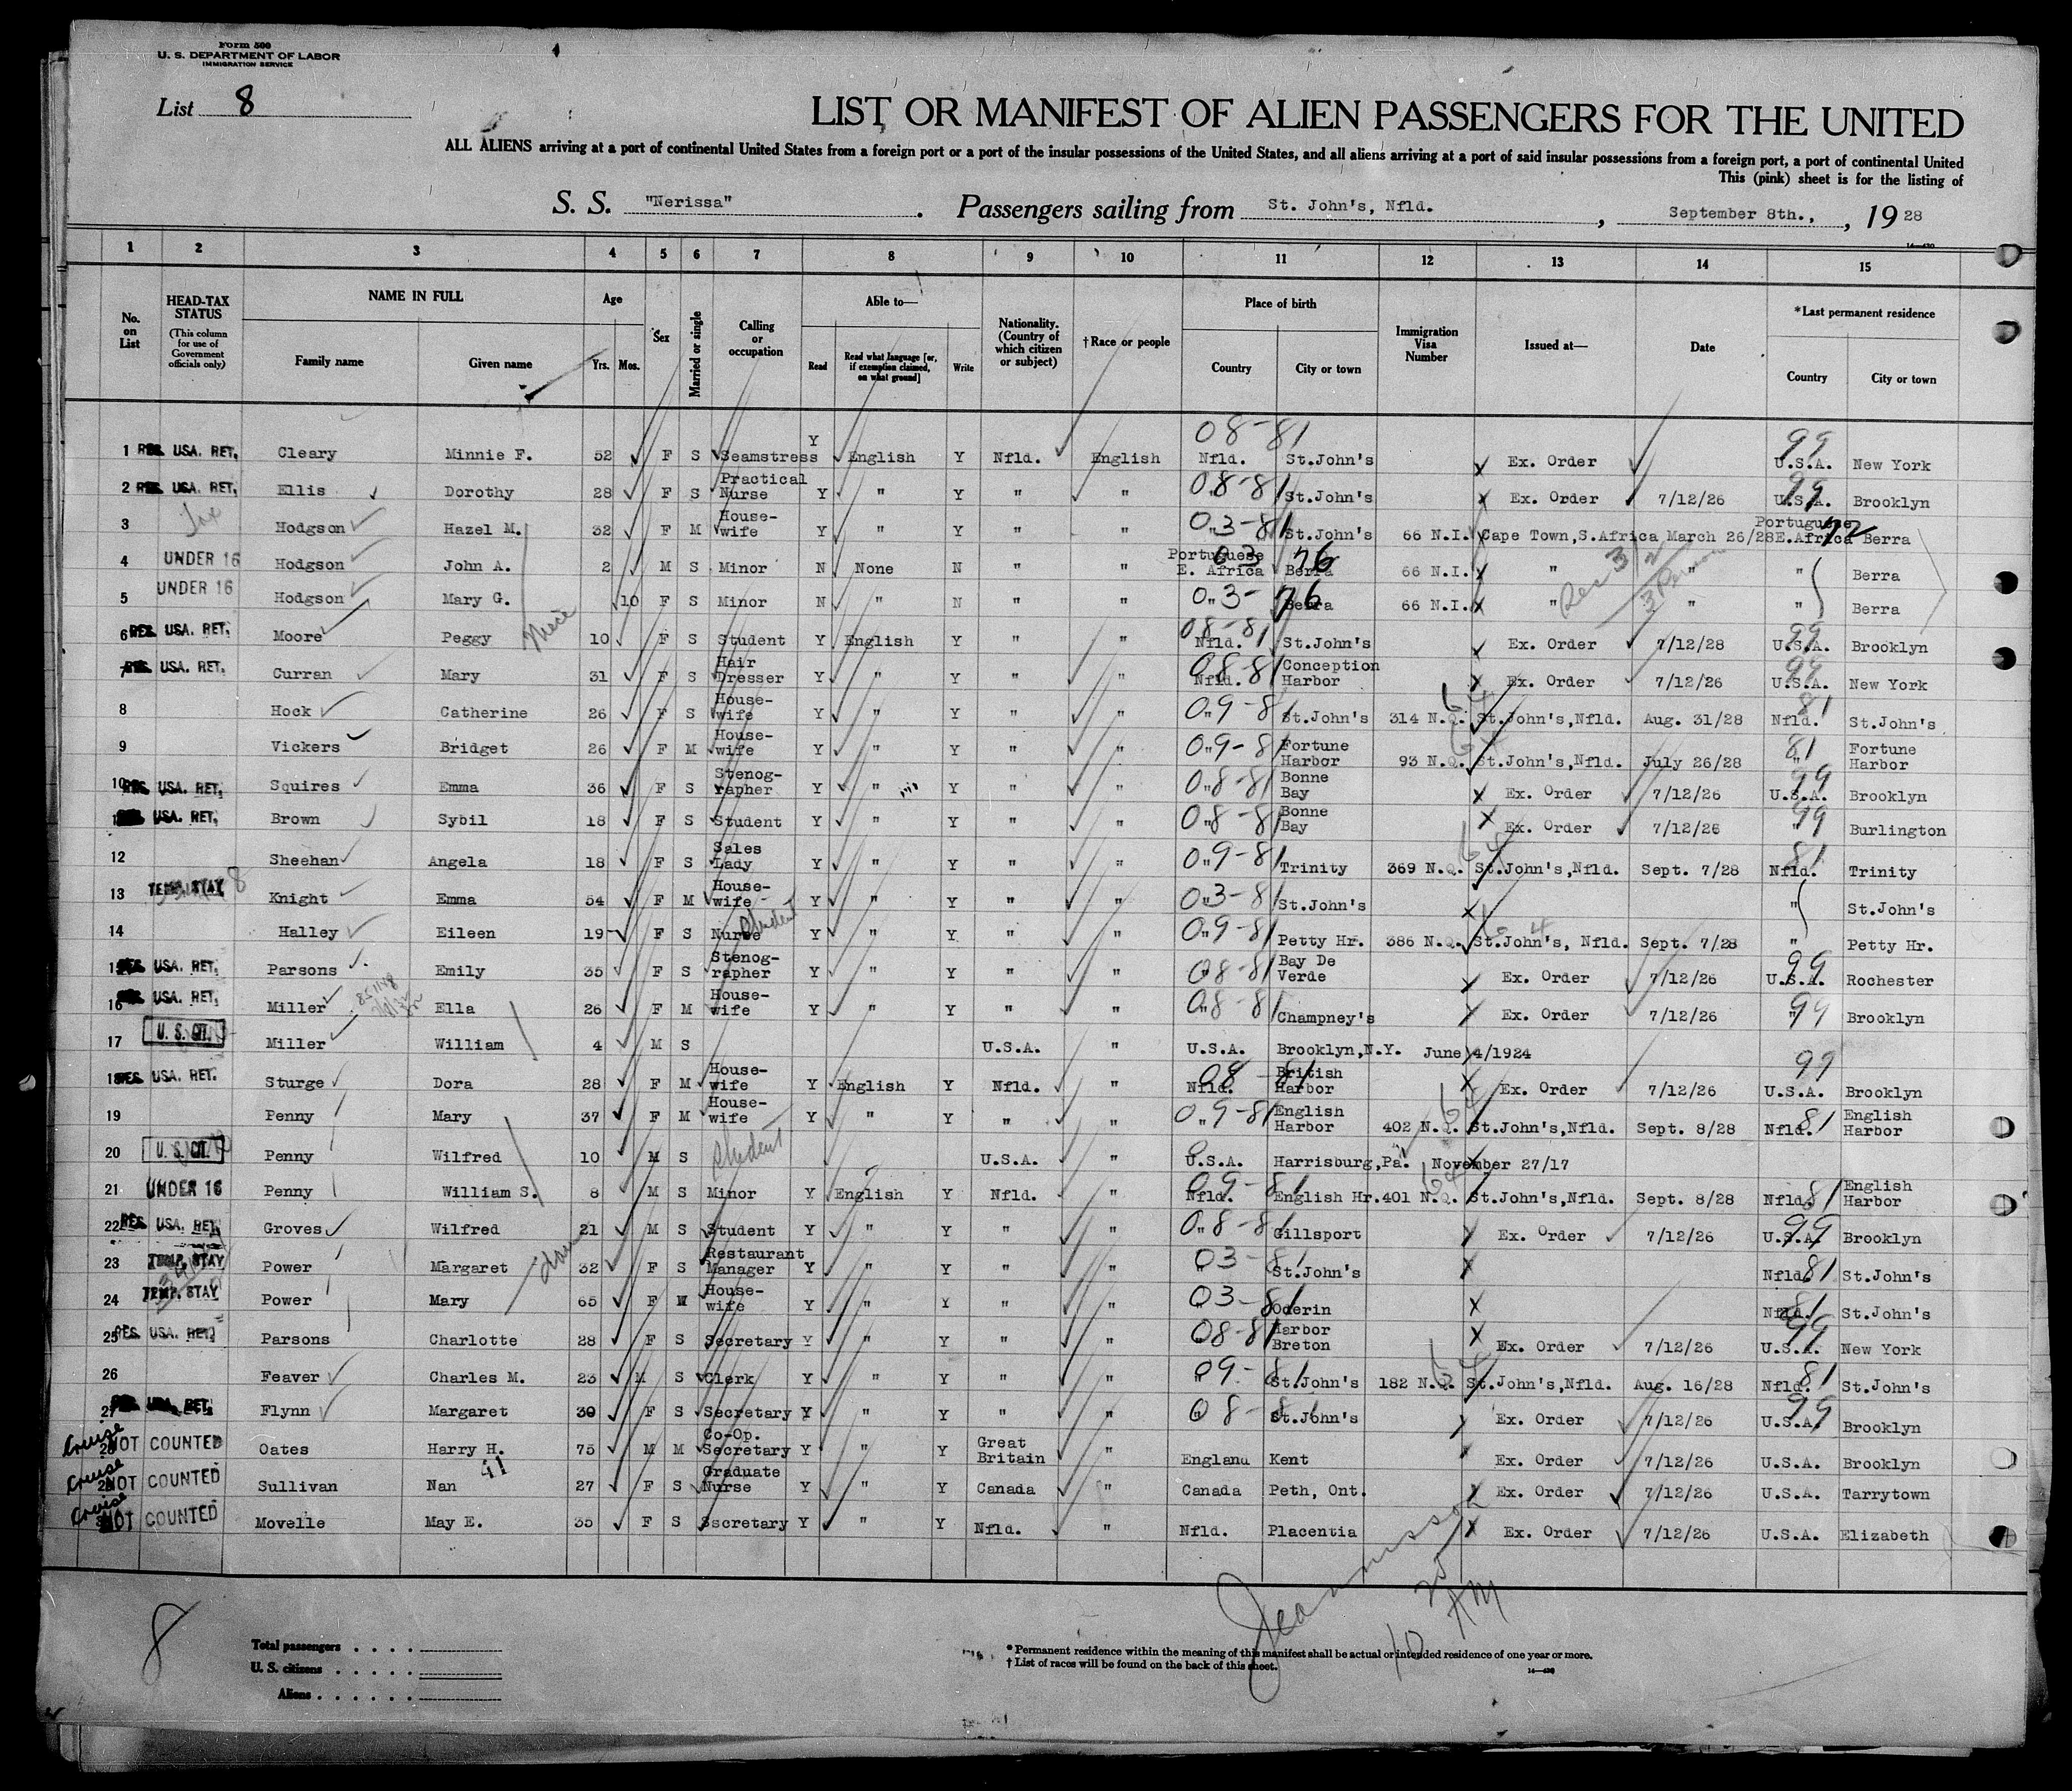 Form 500
U. S. DEPARTMENT OF LABOR
IMMIGRATION SERVICE
List 8
LIST OR MANIFEST OF ALIEN PASSENGERS FOR THE UNITED
ALL ALIENS arriving at a port of continental United States from a foreign port or a port of the insular possessions of the United States, and all aliens arriving at a port of said insular possessions from a foreign port, a port of continental United
This (pink) sheet is for the listing of
S. S. "Nerissa". Passengers sailing from St. John's, Nfld., September 8th., 1928
1 2 3 4 5 6 7 8 9 10 11 12 13 14 15
No. on List HEAD-TAX STATUS (This column for use of Government officials only) NAME IN FULL Family name Given name Age Yrs. Mos. Sex Married or single Calling or occupation Able to— Read Read what language [or, if exemption claimed, on what ground] Write Nationality. (Country of which citizen or subject) †Race or people Place of birth Country City or town Immigration Visa Number Issued at— Date *Last permanent residence Country City or town
1 RES. USA. RET. Cleary Minnie F. 52 F S Seamstress Y English Y Nfld. English 08-81 Nfld. St.John's Ex. Order 99 U.S.A. New York
2 RES. USA. RET. Ellis Dorothy 28 F S Practical Nurse Y " Y " " 08-81 " St.John's Ex. Order 7/12/26 99 U.S.A. Brooklyn
3 Tax Hodgson Hazel M. 32 F M House-wife Y " Y " " 03-81 " St.John's 66 N.I. Cape Town,S.Africa March 26/28 Portuguese E.Africa 72 Berra
4 UNDER 16 Hodgson John A. 2 M S Minor N None N " " Portuguese E. Africa 03 76 Berra 66 N.I. " " " Berra
5 UNDER 16 Hodgson Mary G. 10 F S Minor N " N " " 03-76 " Berra 66 N.I. " " " Berra
6 RES. USA. RET. Moore Peggy Niece 10 F S Student Y English Y " " 08-81 Nfld. St.John's Ex. Order 7/12/28 99 U.S.A. Brooklyn
7 RES. USA. RET. Curran Mary 31 F S Hair Dresser Y " Y " " 08-81 Nfld. Conception Harbor Ex. Order 7/12/26 99 U.S.A. New York
8 Hock Catherine 26 F S House-wife Y " Y " " 09-81 " St.John's 314 N.Q. 64 St.John's,Nfld. Aug. 31/28 81 Nfld. St.John's
9 Vickers Bridget 26 F M House-wife Y " Y " " 09-81 " Fortune Harbor 93 N.Q. 64 St.John's,Nfld. July 26/28 81 " Fortune Harbor
10 RES. USA. RET. Squires Emma 36 F S Stenog-rapher Y " Y " " 08-81 " Bonne Bay Ex. Order 7/12/26 99 U.S.A. Brooklyn
USA. RET. Brown Sybil 18 F S Student Y " Y " " 08-81 " Bonne Bay Ex. Order 7/12/26 99 " Burlington
12 Sheehan Angela 18 F S Sales Lady Y " Y " " 09-81 " Trinity 369 N.Q. 64 St.John's,Nfld. Sept. 7/28 81 Nfld. Trinity
13 TEMP. STAY 8 Knight Emma 54 F M House-wife Y " Y " " 03-81 " St.John's " St.John's
14 Halley Eileen 19 F S Nurse Student Y " Y " " 09-81 " Petty Hr. 386 N.Q. 64 St.John's, Nfld. Sept. 7/28 " Petty Hr.
15 RES. USA. RET. Parsons Emily 35 F S Stenog-rapher Y " Y " " 08-81 Bay De Verde Ex. Order 7/12/26 99 U.S.A. Rochester
16 RES. USA. RET. Miller Ella 26 F M House-wife Y " Y " " 08-81 " Champney's Ex. Order 7/12/26 99 " Brooklyn
17 U. S. CIT. Miller William 4 M S U.S.A. " U.S.A. Brooklyn,N.Y. June 4/1924
18 RES. USA. RET. Sturge Dora 28 F M House-wife Y English Y Nfld. " 08-81 Nfld. British Harbor Ex. Order 7/12/26 99 U.S.A. Brooklyn
19 Penny Mary 37 F M House-wife Y " Y " " 09-81 " English Harbor 402 N.Q. 64 St.John's,Nfld. Sept. 8/28 Nfld. 81 English Harbor
20 U. S. CIT. Penny Wilfred 10 M S Student U.S.A. " U.S.A. Harrisburg,Pa. November 27/17
21 UNDER 16 Penny William S. 8 M S Minor Y English Y Nfld. " 09-81 Nfld. English Hr. 401 N.Q. 64 St.John's,Nfld. Sept. 8/28 Nfld. 81 English Harbor
22 RES. USA. RET. Groves Wilfred 21 M S Student Y " Y " " 08-81 " Gillsport Ex. Order 7/12/26 99 U.S.A. Brooklyn
23 TEMP. STAY Power Margaret 32 F S Restaurant Manager Y " Y " " 03-81 " St.John's Nfld. 81 St.John's
24 TEMP. STAY Power Mary 65 F M House-wife Y " Y " " 03-81 Oderin Nfld. 81 St.John's
25 RES. USA. RET. Parsons Charlotte 28 F S Secretary Y " Y " " 08-81 Harbor Breton Ex. Order 7/12/26 99 U.S.A. New York
26 Feaver Charles M. 23 M S Clerk Y " Y " " 09-81 St.John's 182 N.Q. 64 St.John's,Nfld. Aug. 16/28 81 Nfld. St.John's
27 RES. USA. RET. Flynn Margaret 30 F S Secretary Y " Y " " 08-81 St.John's Ex. Order 7/12/26 99 U.S.A. Brooklyn
Cruise 28 NOT COUNTED Oates Harry H. 75 M M Co-Op. Secretary Y " Y Great Britain " England Kent Ex. Order 7/12/26 U.S.A. Brooklyn
Cruise 29 NOT COUNTED Sullivan Nan 41 27 F S Graduate Nurse Y " Y Canada " Canada Peth, Ont. Ex. Order 7/12/26 U.S.A. Tarrytown
Cruise NOT COUNTED Movelle May E. 35 F S Secretary Y " Y Nfld. " Nfld. Placentia Ex. Order 7/12/26 U.S.A. Elizabeth
8
10 25 AM
Total passengers . . . .
U. S. citizens . . . . .
Aliens . . . . . .
* Permanent residence within the meaning of this manifest shall be actual or intended residence of one year or more.
† List of races will be found on the back of this sheet.